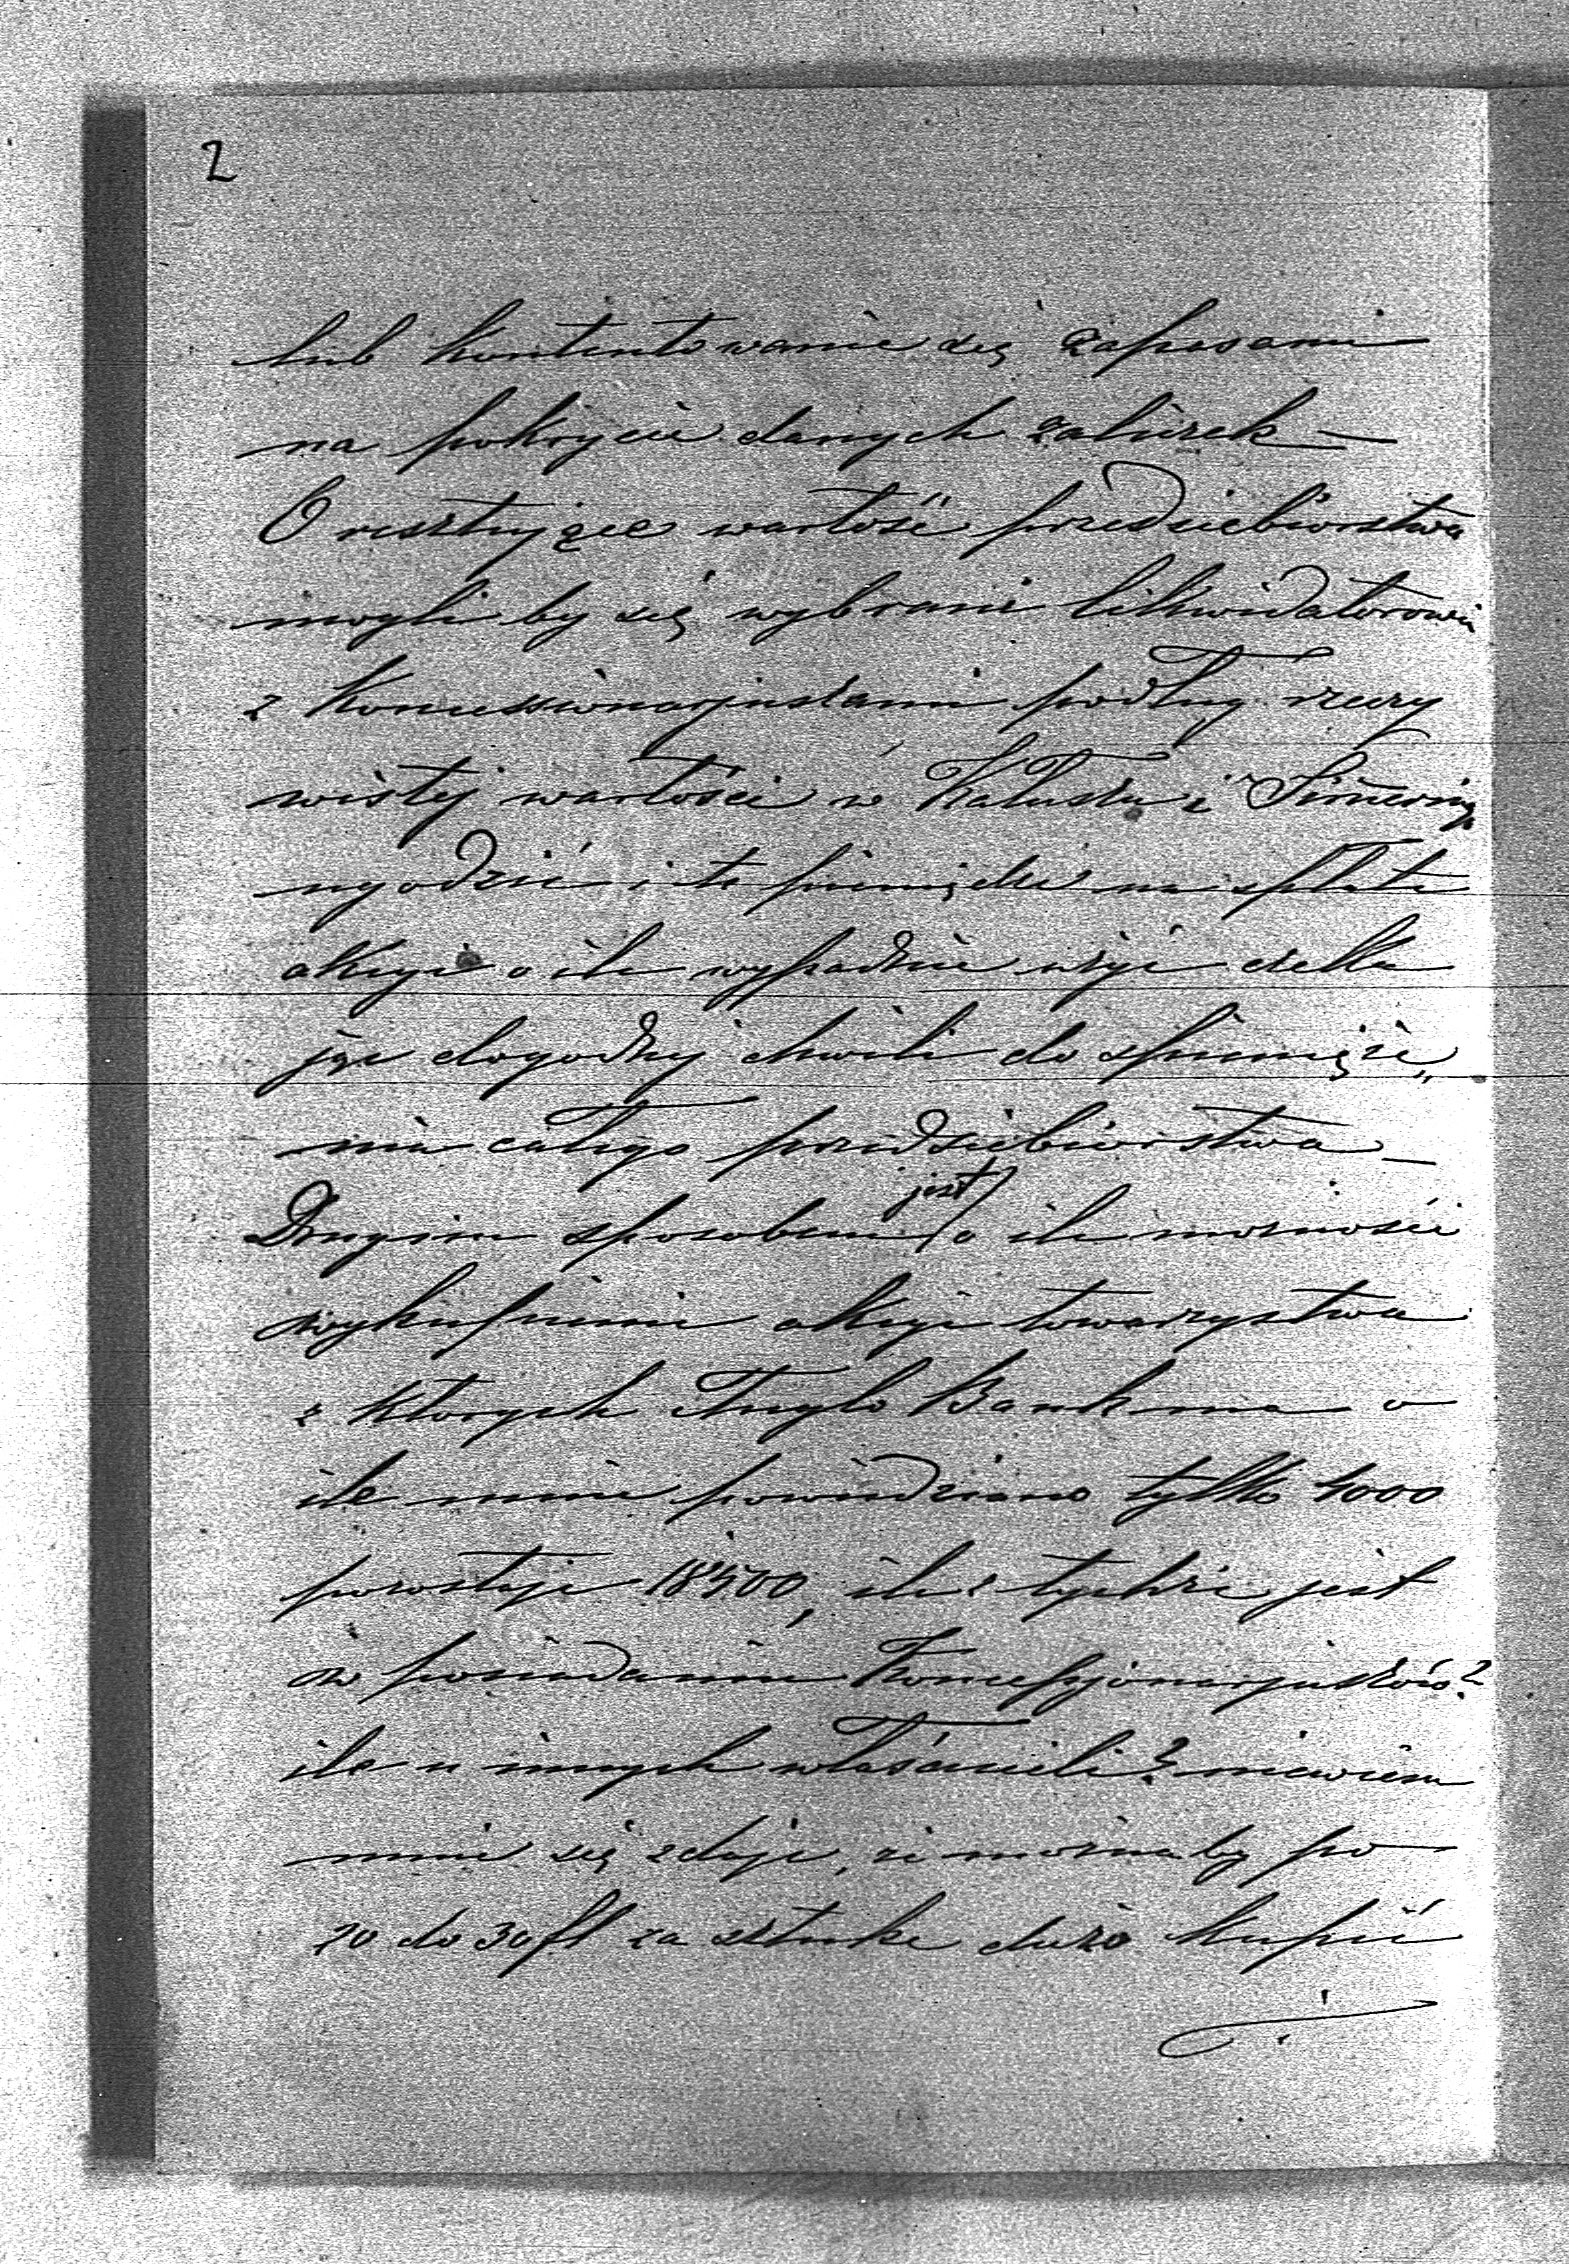 2
lub kontentowanie się zapasami
na pokrycie danych zaliczek —
O resztujące wartość przedsiebiorstwa
mogli by się wybranie likwidatorowie
z Koncessionarjuszami podług rzeczy
wistej wartości w Kałuszu i
ugodzić i te pieniądze na spłate
akcyi o ile wypadnie użyć czeka
jąc dogodnej chwili do spienięże„
nia całego przedsiebiorstwa —
Drugim sposobem jest o ile możności
wykupienie akcyi towarzystwa
z których Anglo Bank ma o
ile mnie powiedziano tylko 4000
pozostaje 18500, ile z tychże jest
w posiadaniu Koncessyonarjuszów?
ile u innych właścicieli? niewiem
mnie się zdaje, że możnaby po
20 do 30 fl za sztuke dużo kupić